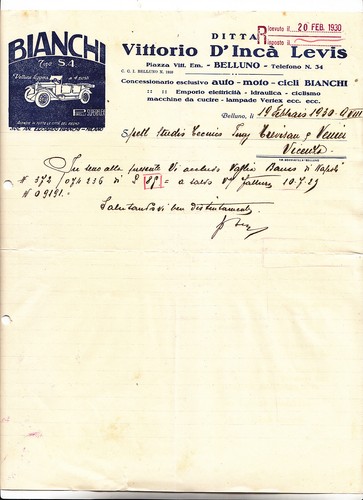 BIANCHI
Tipo S.4
DITTA
Ricevuta il 20 FEB. 1930
Risposto il
Vittorio D'Incà Levis
Piazza Vitt. Em. - BELLUNO - Telefono N. 34
C. C. I. BELLUNO N.
Concessionario esclusivo auto - moto - cicli BIANCHI
Emporio elettricità - idraulica - ciclismo
macchine da cucire - lampade Vertex ecc. ecc.
Belluno, 19 Febbraio 1930 VIII
Spett. Studio Tecnico Ing. Trevisan &
Vicenza
In seno alla presente Vi accludo Vaglia Banco di Napoli
N 372/074236 di £ 89 = a saldo Vs/ fattura 10.7.29
N 09191.
Salutandovi ben distintamente